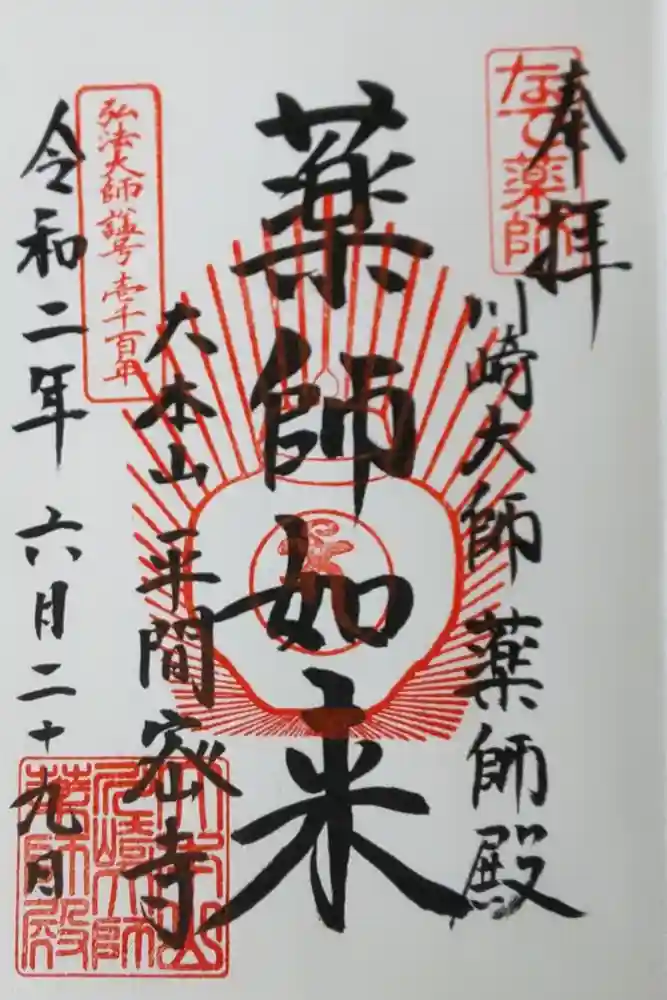 奉拝
なで薬師
川崎大師薬師殿
薬師如来
大本山平間密寺
弘法大師諡号壱千百年
令和二年六月二十九日
大本山
川崎大師
薬師殿